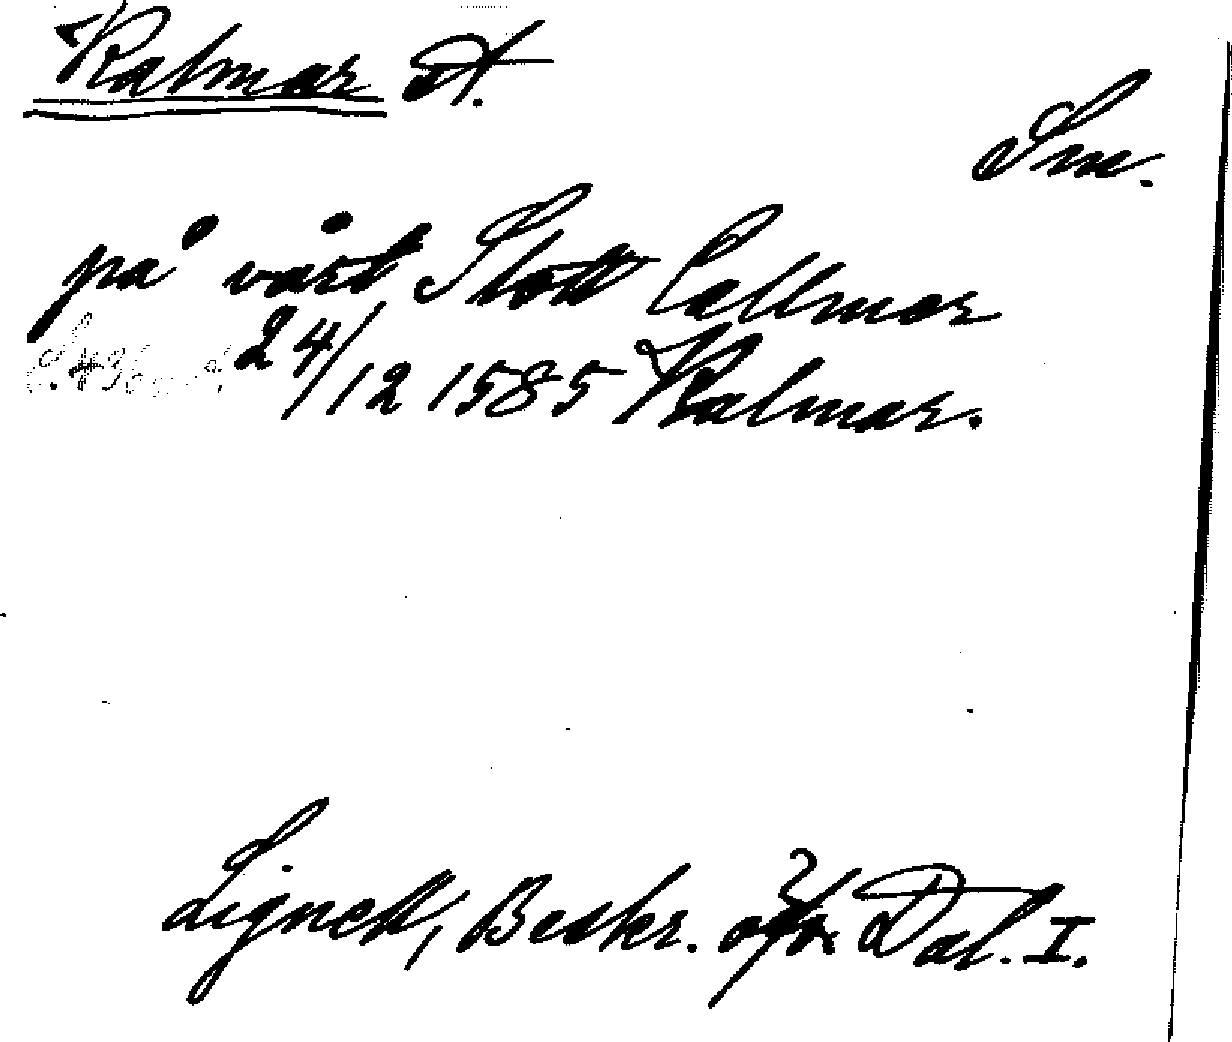 Kalmar st.
Sm.
på vårt Slott Callmar
24/12 1585 Kalmar.
Lignell, Beskr. öfv. Dal. I.